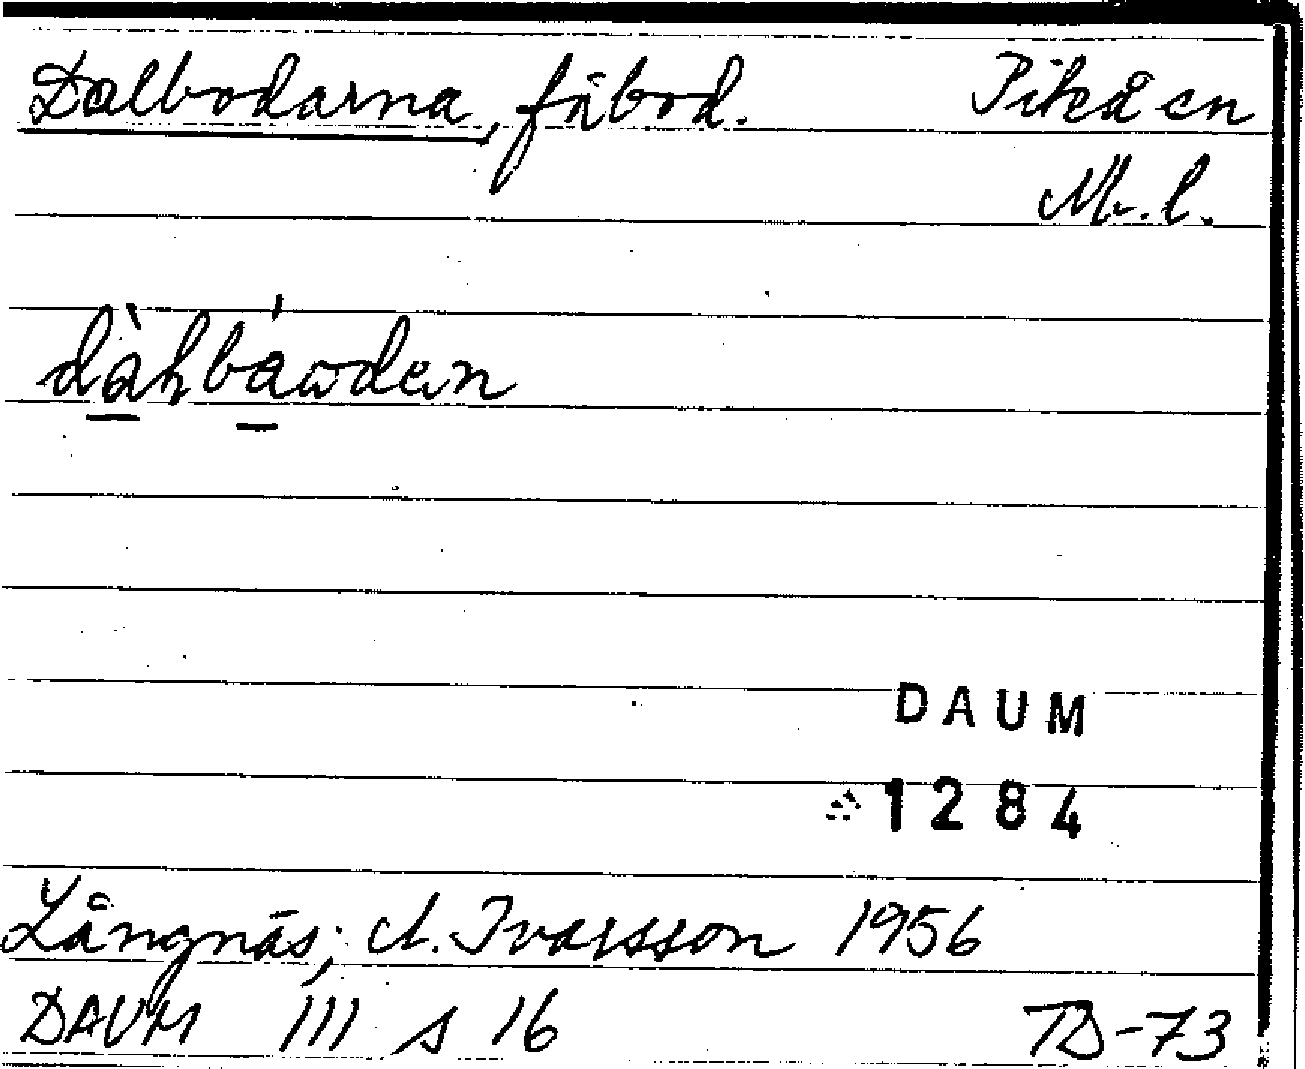 Dalbodarna, fäbod. Piteå sn
Nr. l.
dàhbáoden
DAUM
1284
Långnäs; A. Ivarsson 1956
DAUM III s 16
TD-73